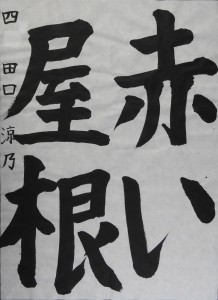 赤い
屋根
四 田口 涼乃